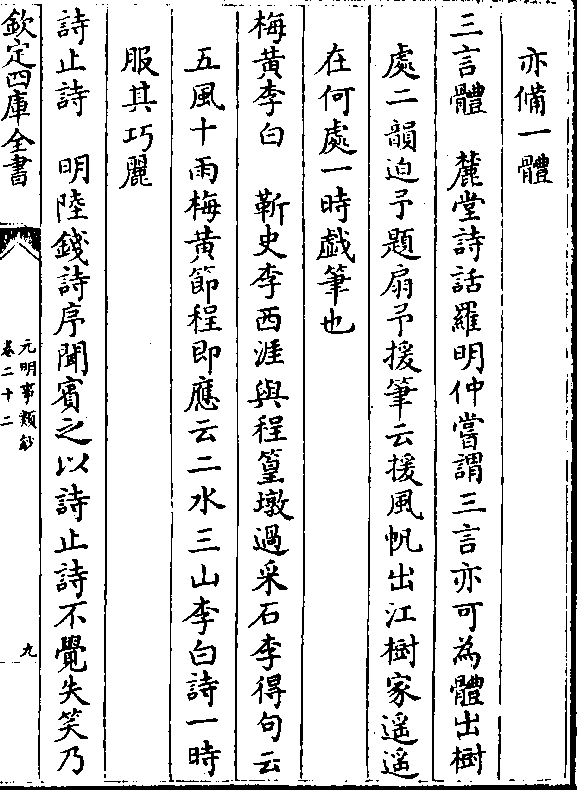 亦備一體
三言體　麓堂詩話羅明仲嘗謂三言亦可為體出樹
處二韻迫予題扇予援筆云援風帆出江樹家遥遥
在何處一時戲筆也
梅黄李白　靳史李西涯與程篁墩過采石李得句云
五風十雨梅黄節程即應云二水三山李白詩一時
服其巧麗
詩止詩　明陸錢詩序聞賓之以詩止詩不覺失笑乃
欽定四庫全書
元明事類鈔
卷二十二
九